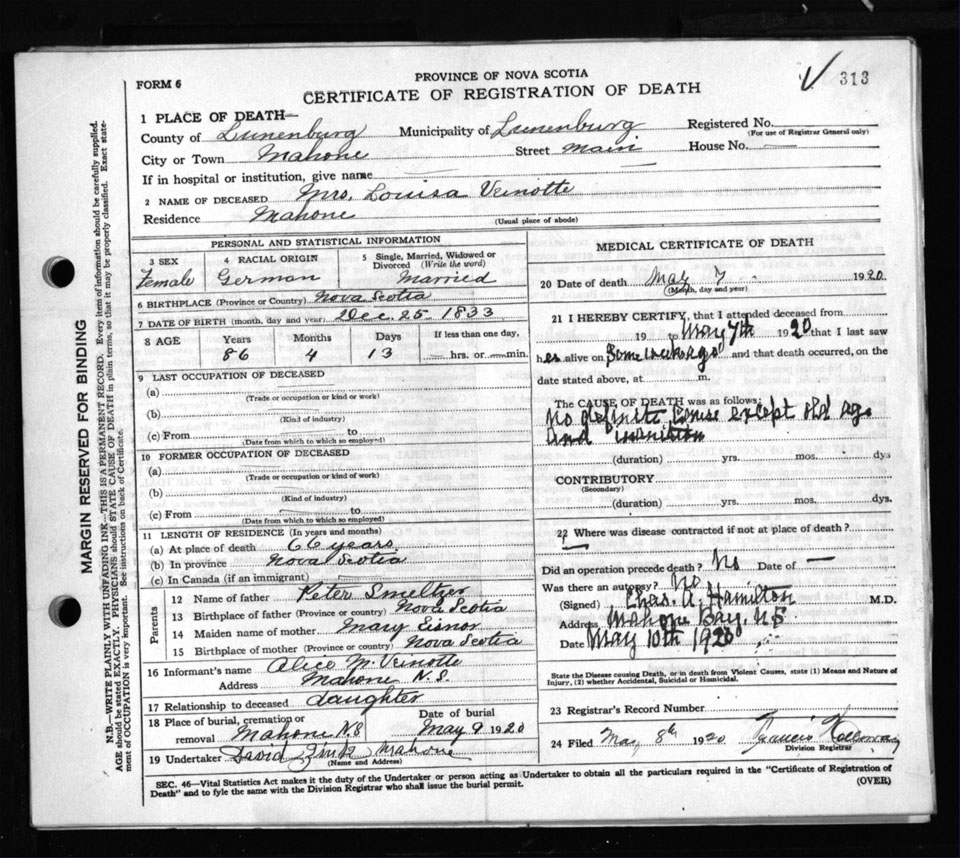 313
PROVINCE OF NOVA SCOTIA
FORM 6
CERTIFICATE OF REGISTRATION OF DEATH
1 PLACE OF DEATH—
County of Lunenburg Municipality of Lunenburg Registered No.
(For use of Registrar General only)
City or Town Mahone Street Main House No. —
If in hospital or institution, give name
2 NAME OF DECEASED Mrs. Louisa Veinotte
Residence Mahone
(Usual place of abode)
PERSONAL AND STATISTICAL INFORMATION
3 SEX 4 RACIAL ORIGIN 5 Single, Married, Widowed or Divorced (Write the word)
Female German Married
6 BIRTHPLACE (Province or Country) Nova Scotia
7 DATE OF BIRTH (month, day and year) Dec. 25. 1833
8 AGE Years Months Days If less than one day,
86 4 13 — hrs. or — min.
9 LAST OCCUPATION OF DECEASED
(a)
(Trade or occupation or kind or work)
(b)
(Kind of industry)
(c) From to
(Date from which to which so employed)
10 FORMER OCCUPATION OF DECEASED
(a)
(Trade or occupation or kind of work)
(b)
(Kind of industry)
(c) From to
(Date from which to which so employed)
11 LENGTH OF RESIDENCE (In years and months)
(a) At place of death 66 years
(b) In province Nova Scotia
(c) In Canada (if an immigrant)
Parents
12 Name of father Peter Smeltzer
13 Birthplace of father (Province or country) Nova Scotia
14 Maiden name of mother Mary Eisnor
15 Birthplace of mother (Province or country) Nova Scotia
16 Informant's name Alice M. Veinotte
Address Mahone N.S.
17 Relationship to deceased daughter
18 Place of burial, cremation or removal Mahone N.S Date of burial May 9 1920
19 Undertaker David Mahone
(Name and Address)
MEDICAL CERTIFICATE OF DEATH
20 Date of death May 7 1920
(Month, day and year)
21 I HEREBY CERTIFY, that I attended deceased from
19 to May 7th 1920 that I last saw
her alive on Some weeks ago and that death occurred, on the
date stated above, at m.
The CAUSE OF DEATH was as follows:
No definite Cause except old age
and inanition
(duration) yrs. mos. dys
CONTRIBUTORY
(Secondary)
(duration) yrs. mos. dys.
22 Where was disease contracted if not at place of death?
Did an operation precede death? No Date of —
Was there an autopsy? No
(Signed) Chas. A. Hamilton M.D.
Address Mahone Bay, N.S
Date May 10th 1920
State the Disease causing Death, or in death from Violent Causes, state (1) Means and Nature of Injury, (2) whether Accidental, Suicidal or Homicidal.
23 Registrar's Record Number
24 Filed May 8th 1920 Francis
Division Registrar
SEC. 46—Vital Statistics Act makes it the duty of the Undertaker or person acting as Undertaker to obtain all the particulars required in the "Certificate of Registration of
Death" and to fyle the same with the Division Registrar who shall issue the burial permit. (OVER)
MARGIN RESERVED FOR BINDING
N.B.—WRITE PLAINLY WITH UNFADING INK—THIS IS A PERMANENT RECORD. Every item of information should be carefully supplied.
AGE should be stated EXACTLY. PHYSICIANS should STATE CAUSE OF DEATH in plain terms, so that it may be properly classified. Exact state-
ment of OCCUPATION is very important. See instructions on back of Certificate.